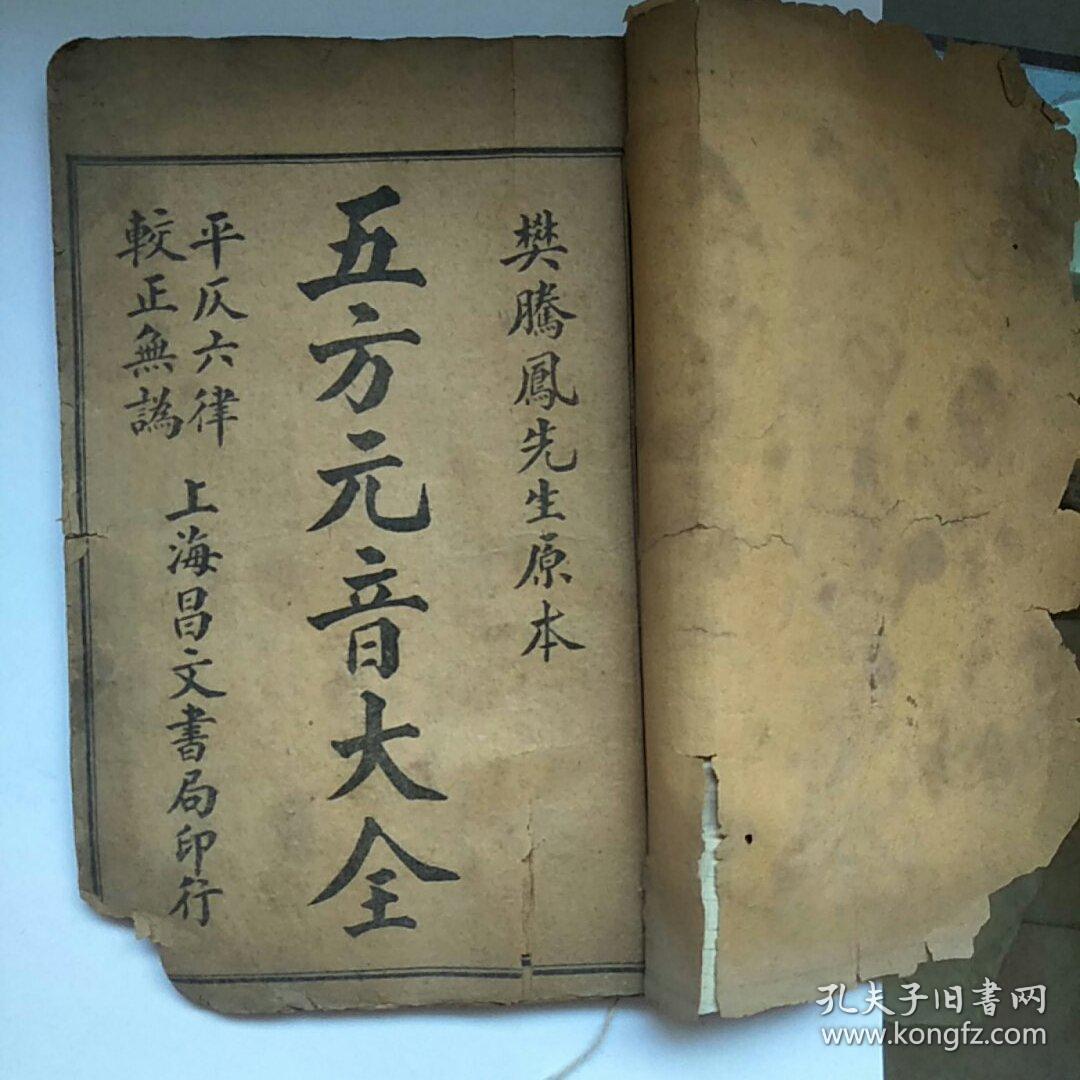 樊騰鳳先生原本
五方元音大全
平仄六律
較正無譌
上海昌文書局印行
孔夫子旧書网
www.kongfz.com